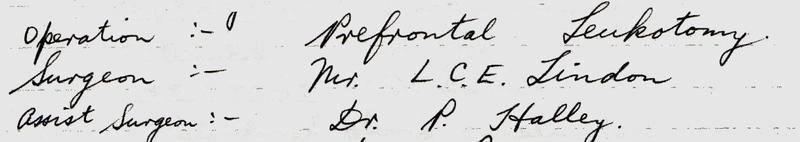 Operation :- Prefrontal Leukotomy.
Surgeon :- Mr. L.C.E. Lindon
Assist Surgeon :- Dr. P. Halley.